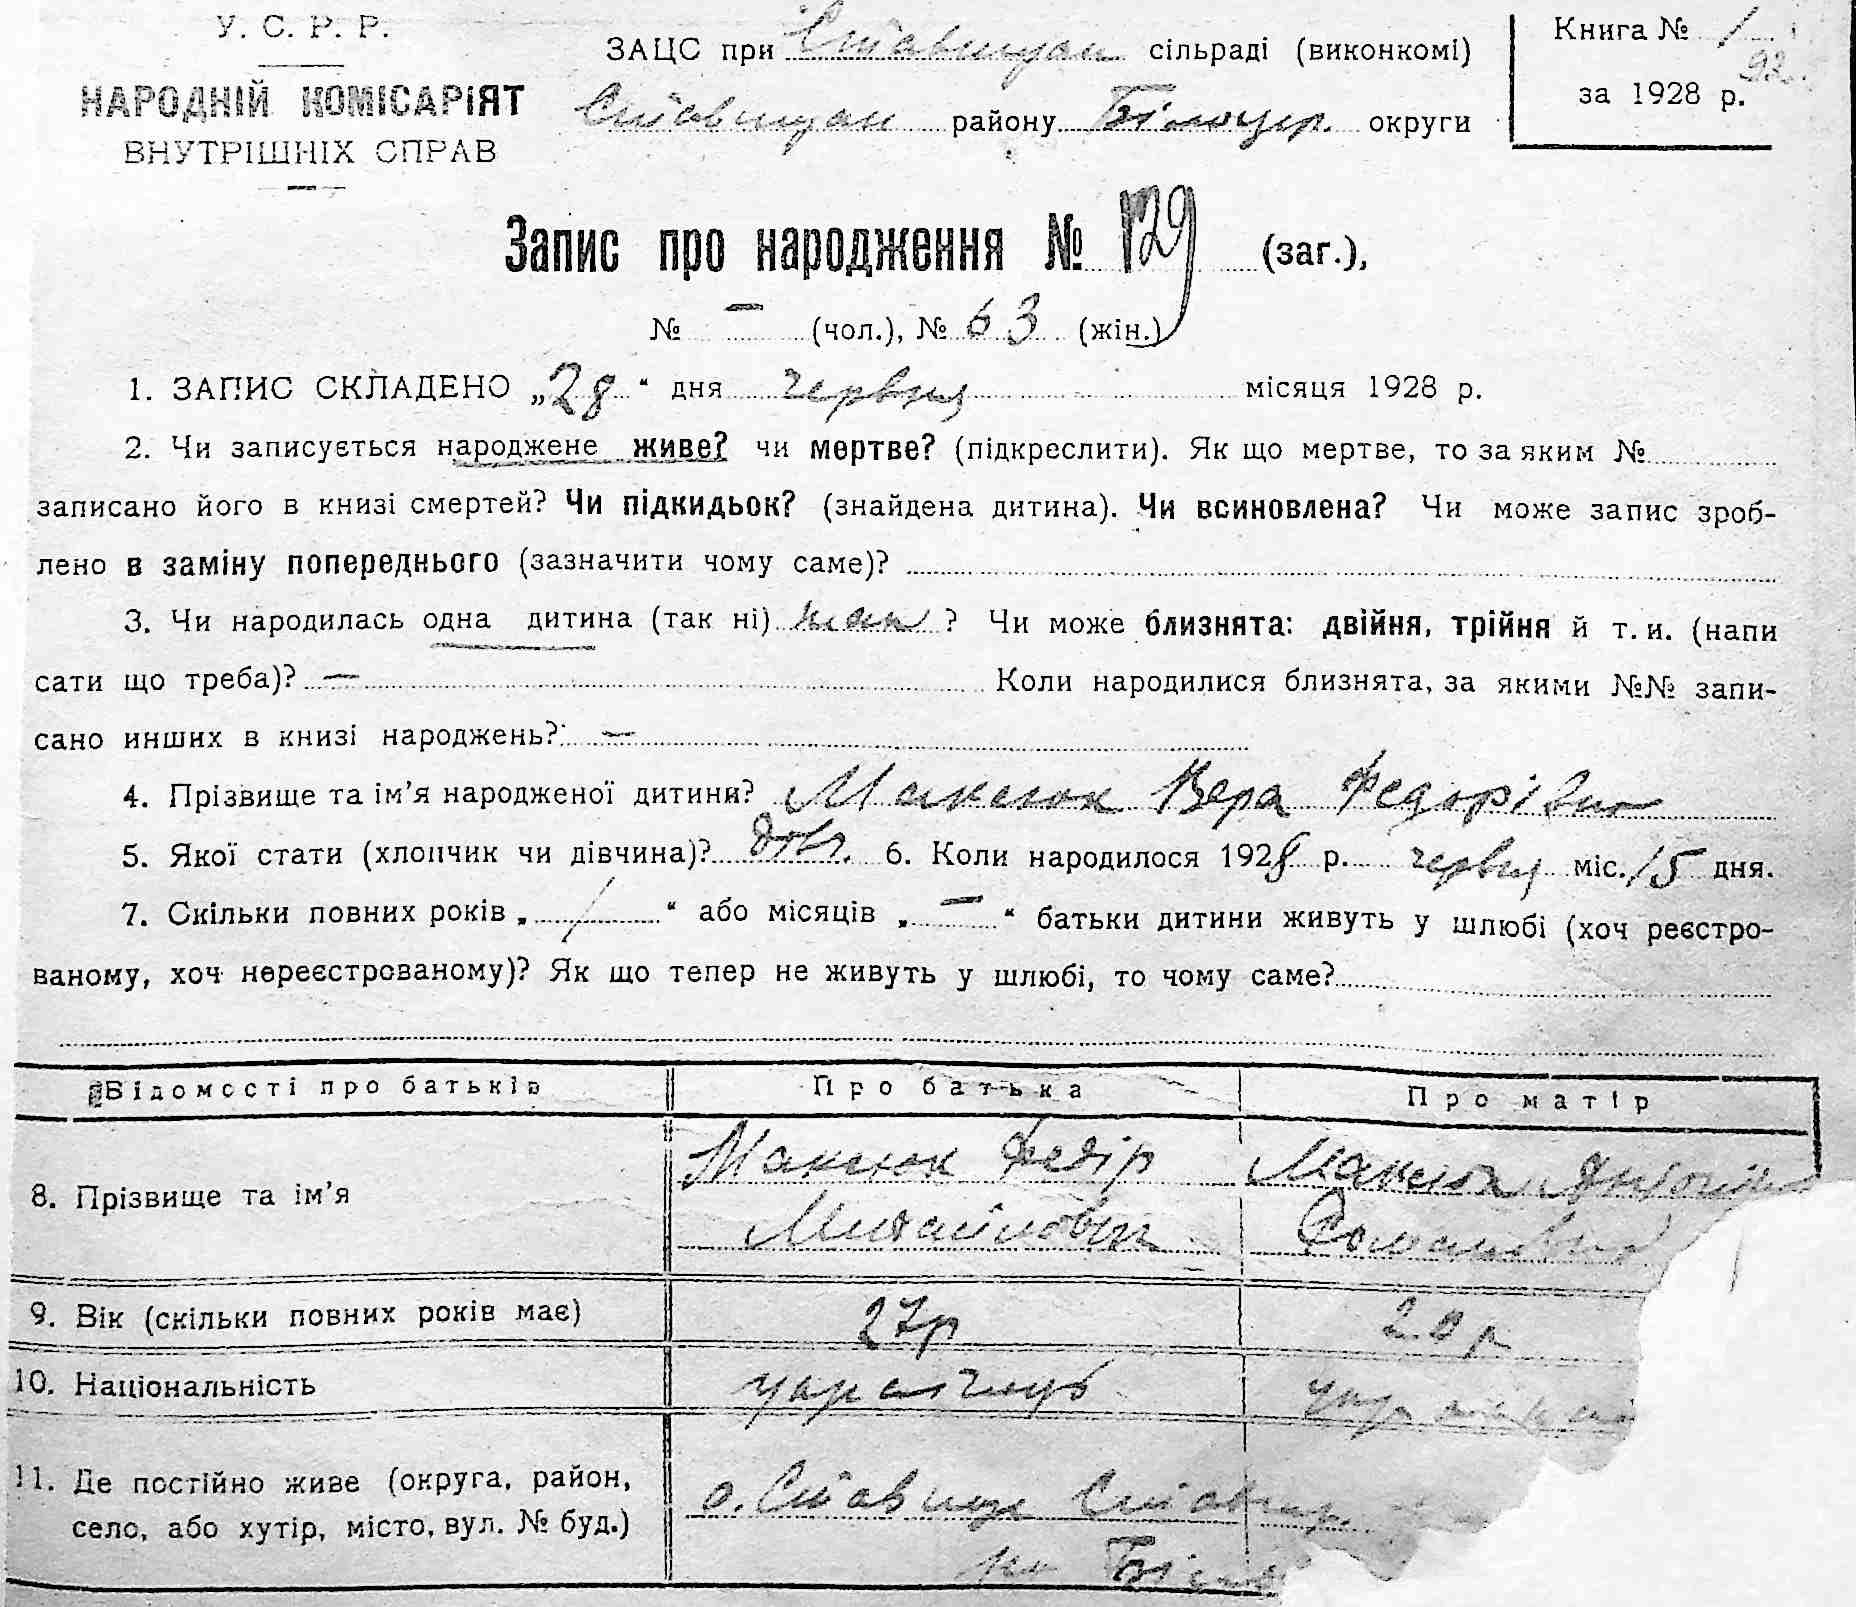 У. С. Р. Р.
НАРОДНІЙ КОМІСАРІЯТ
ВНУТРІШНІХ СПРАВ
ЗАЦС при Ставищан сільраді (виконкомі)
Ставищан району Білоцер. округи
Книга № 1
за 1928 р.
92
Запис про народження № 129 (заг.),
№ — (чол.), № 63 (жін.)
1. ЗАПИС СКЛАДЕНО „28“ дня червня місяця 1928 р.
2. Чи записується народжене живе? чи мертве? (підкреслити). Як що мертве, то за яким №
записано його в книзі смертей? Чи підкидьок? (знайдена дитина). Чи всиновлена? Чи може запис зроб-
лено в заміну попереднього (зазначити чому саме)?
3. Чи народилась одна дитина (так ні) так ? Чи може близнята: двійня, трійня й т. и. (напи
сати що треба)? — Коли народилися близнята, за якими №№ запи-
сано инших в книзі народжень? —
4. Прізвище та ім’я народженої дитини? Максюк Вера Федорівна
5. Якої стати (хлопчик чи дівчина)? дівч. 6. Коли народилося 1928 р. червня міс. 15 дня.
7. Скільки повних років „ / “ або місяців „ — “ батьки дитини живуть у шлюбі (хоч реєстро-
ваному, хоч нереєстрованому)? Як що тепер не живуть у шлюбі, то чому саме?
Відомості про батьків Про батька Про матір
8. Прізвище та ім’я
Максюк Федір
Михайлович
Максюк Антоніна
Романівна
9. Вік (скільки повних років має) 27р 20 р
10. Національність українець
11. Де постійно живе (округа, район,
село, або хутір, місто, вул. № буд.)
с. Ставище Ставищ.
Біл